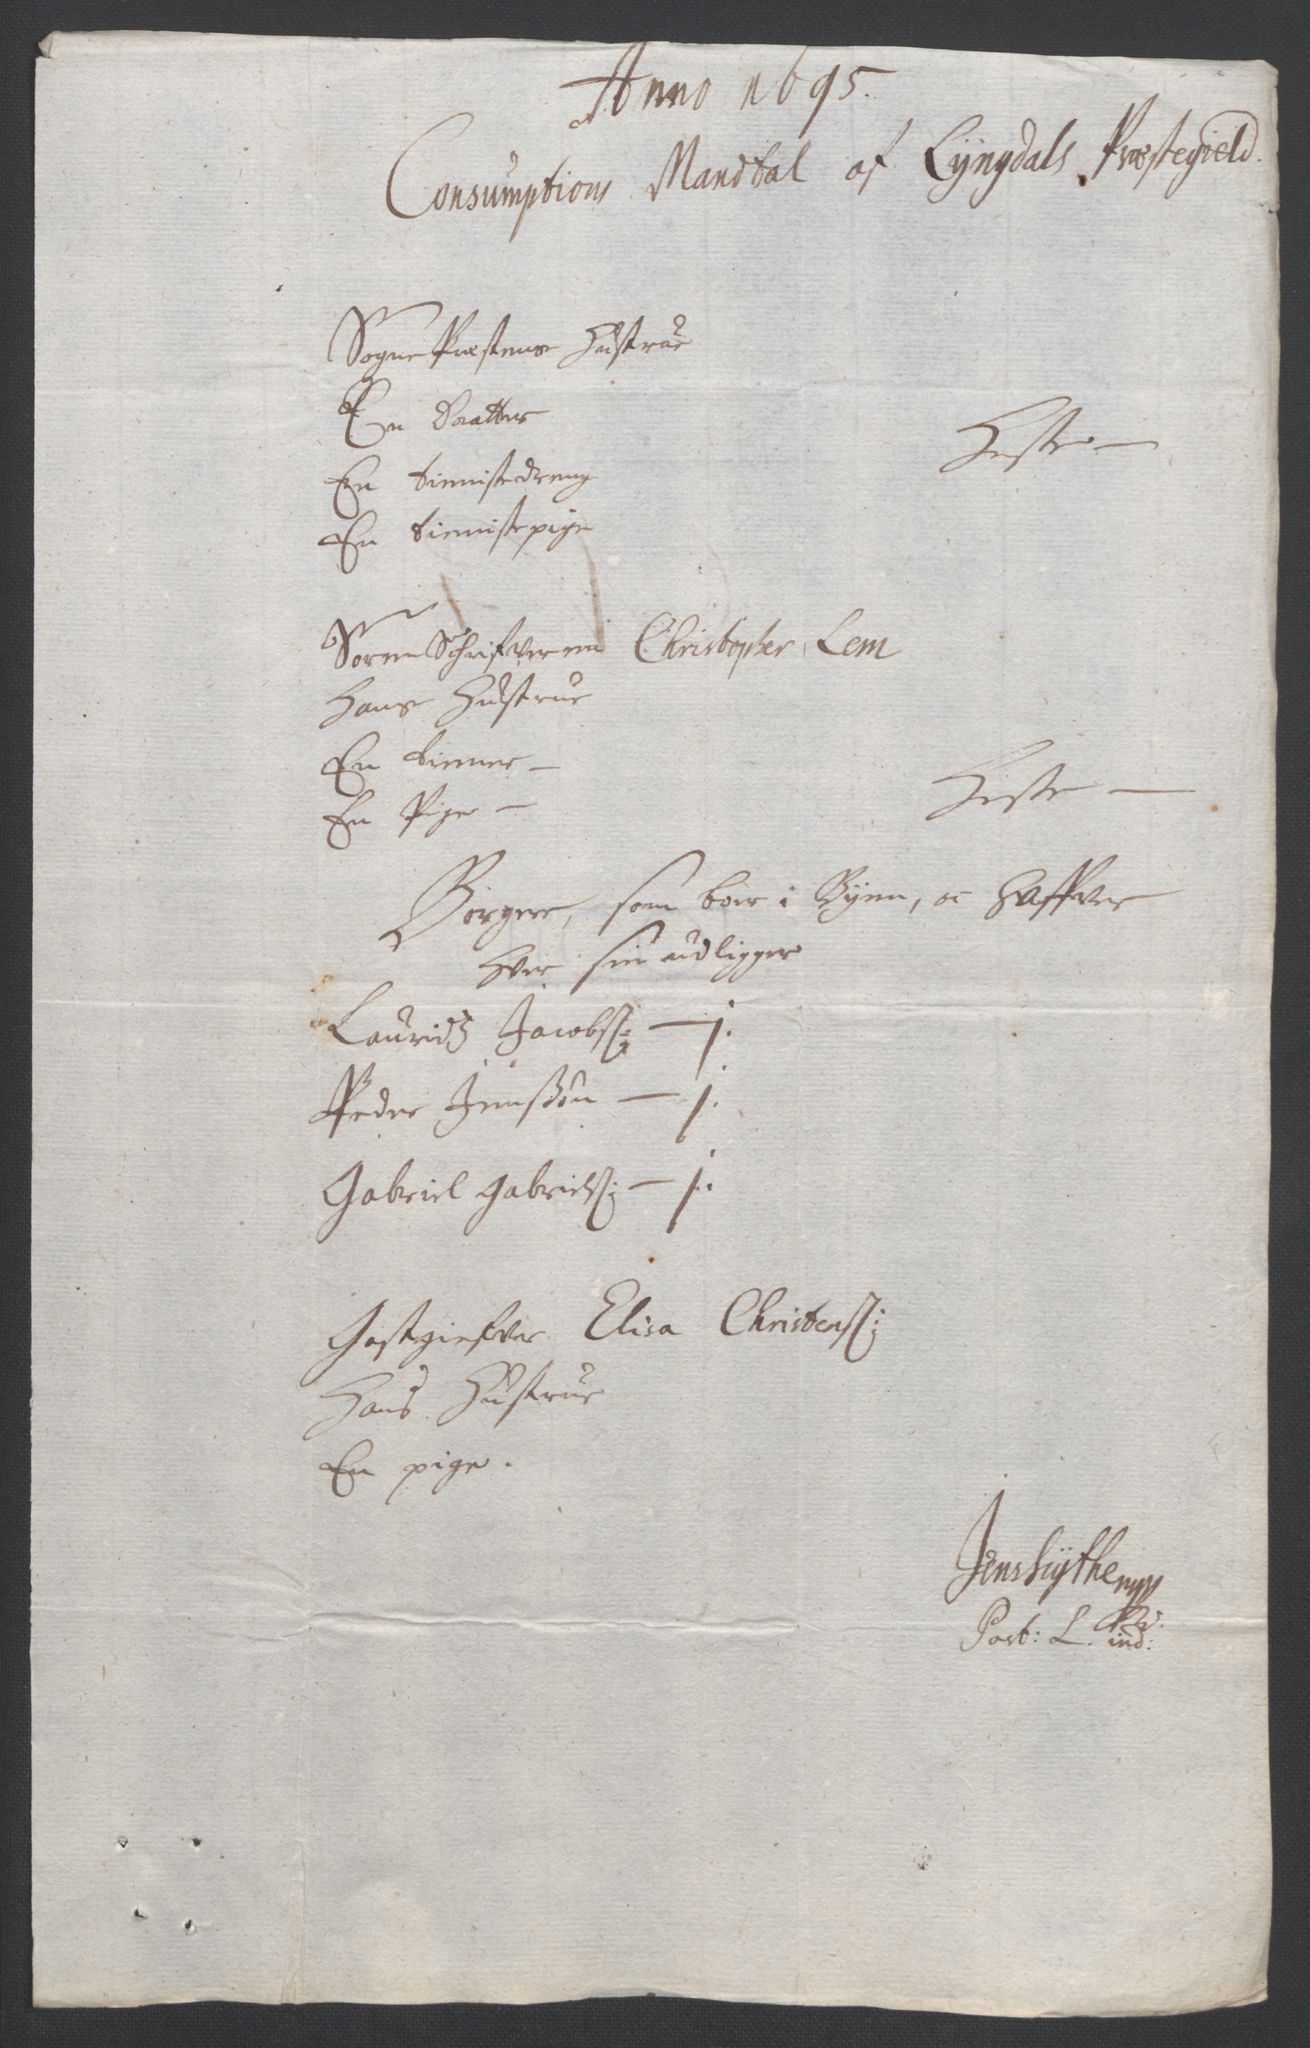 Anno 1695.
Consumptions Mandtal af Lyngdals Præstegield.
Sogne Præstens Hustrue
En Daatter
Heste —
En tienistedreng
En tienistepige
Sorenschrifveren Christopher Lem
Hans Hustrue
En tienner —
En Pige —
Heste —
Borgere, som boer i Byen, oc haffver
hver sin udligger
Lauridz Jacobsß: — j.
Peder Jenssøn — j.
Gabriel Gabrielsß: — j.
Gestgiefver Elisa Christensß:
Hans Hustrue
En pige.
Jens
Past: L. ind: